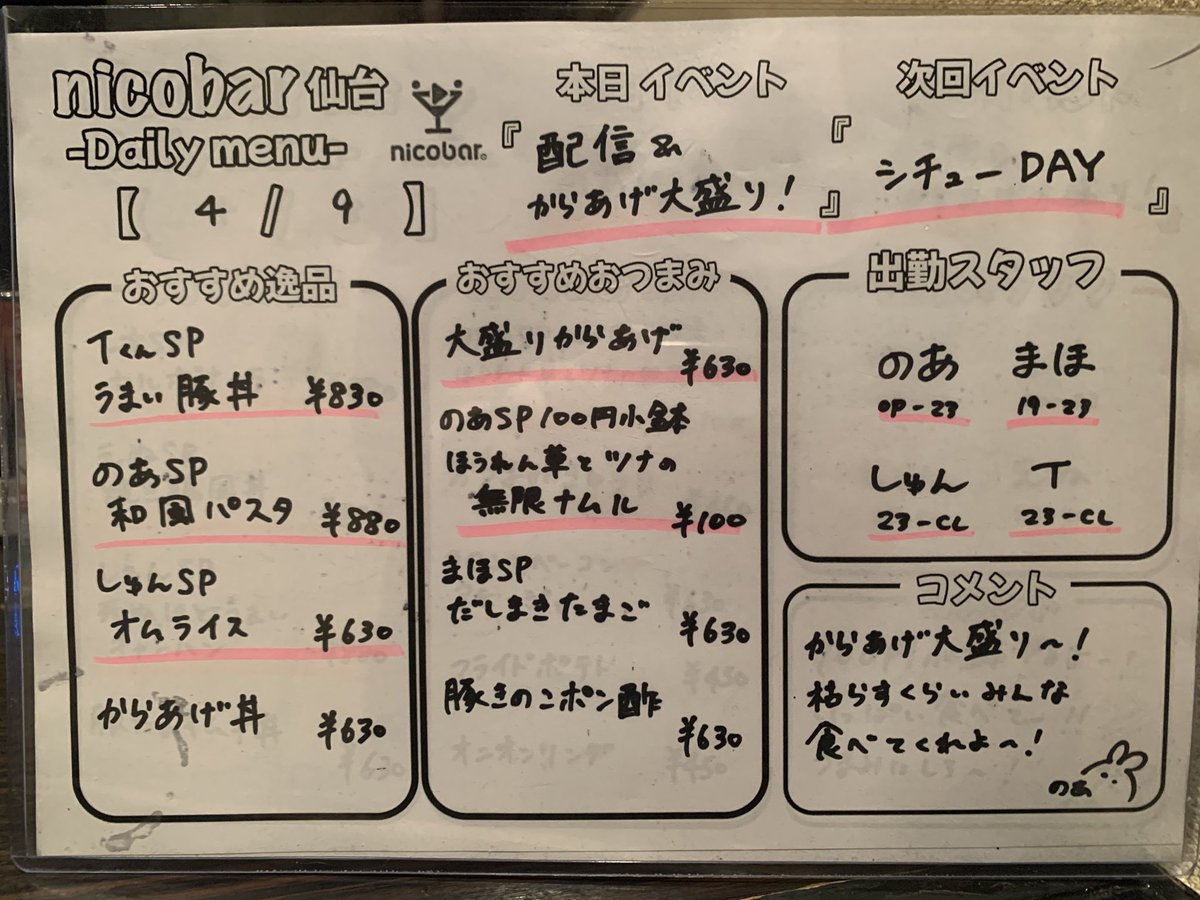 nicobar 仙台
-Daily menu-
【 4 / 9 】
nicobar®
本日イベント
『配信&
からあげ大盛り!』
次回イベント
『シチューDAY』
おすすめ逸品
TくんSP
うまい豚丼 ¥830
のあSP
和風パスタ ¥880
しゅんSP
オムライス ¥630
からあげ丼 ¥630
おすすめおつまみ
大盛りからあげ ¥630
のあSP100円小鉢
ほうれん草とツナの
無限ナムル ¥100
まほSP
だしまきたまご ¥630
豚きのこポン酢 ¥630
出勤スタッフ
のあ まほ
OP-23 19-23
しゅん T
23-CL 23-CL
コメント
からあげ大盛り〜!
枯らすくらいみんな
食べてくれよ〜!
のあ